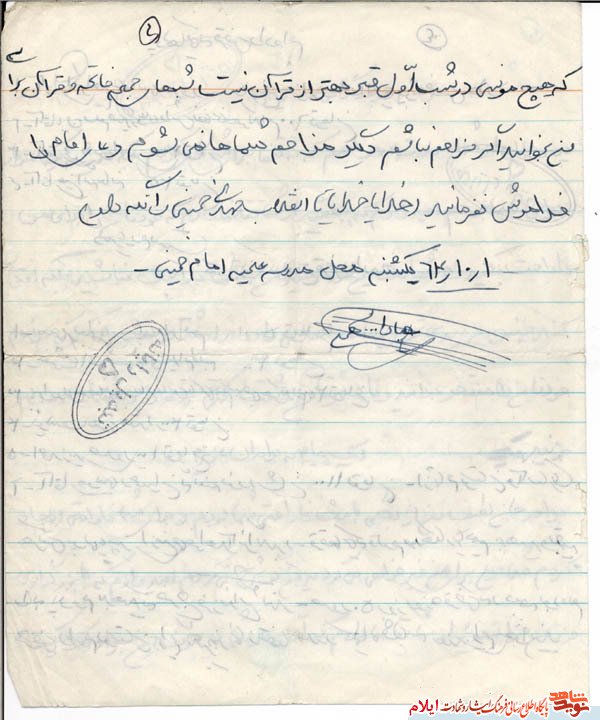 ٤
که هیچ مونسی در شب اول قبر بهتر از قرآن نیست شبهای جمعه فاتحه و قرآن برای
من بخوانید اگر مزاحم نباشم دیگر مزاحم شماها نمی شوم دعای امام را
فراموش نفرمائید (خدایا خدایا تا انقلاب مهدی خمینی را نگه دار)
۶۴/۱۰/۱ یکشنبه محل مدرسه علمیه امام خمینی -
نوید شاهد
پایگاه اطلاع رسانی فرهنگ ایثار و شهادت ایلام